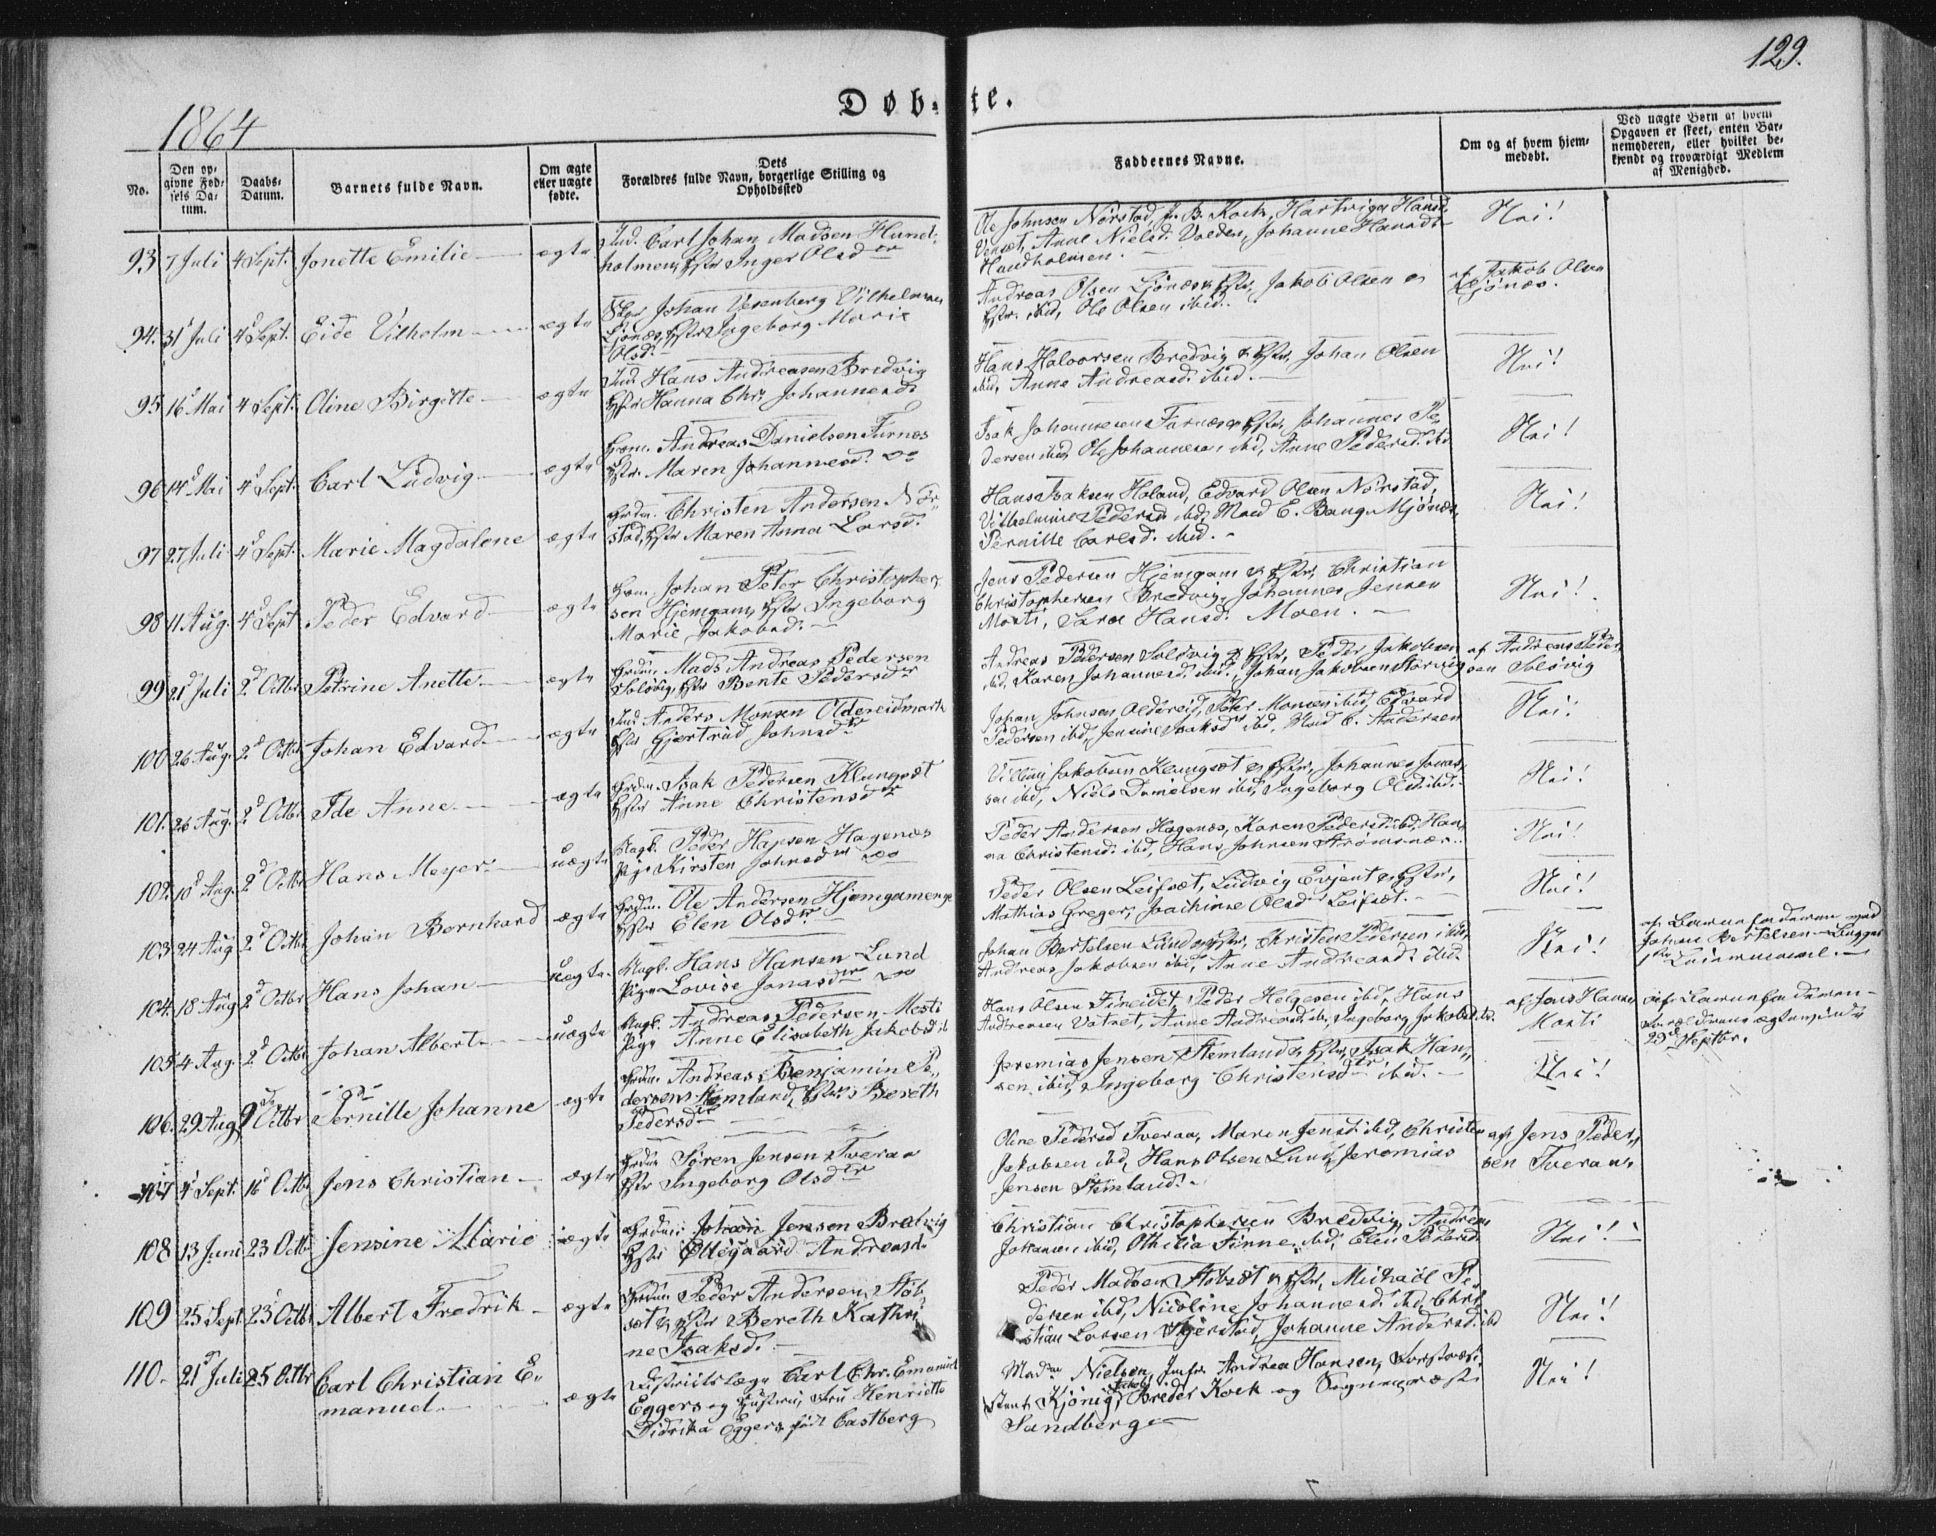 129.
Døb-te.
1864
No.
Den opgivne Fødsels Datum.
Daabs-Datum.
Barnets fulde Navn.
Om ægte eller uægte fødte.
Dets Forældres fulde Navn, borgerlige Stilling og Opholdssted
Faddernes Navne.
Om og af hvem hjemmedøbt.
Ved uægte Børn af hvem Opgaven er skeet, enten Barnemoderen, eller hvilket bekjendt og troværdigt Medlem af Menighed.
93 7 Juli 4 Sept. Jonette Emilie ægte Ind. Carl Johan Madsen Hund-
holmen, Hstr Inger Olsdr
Ole Johnsen Nörstad, J. B. Kock, Hartvig Hansd.
Anne Nielsd. Valden, Johanne Hansd.
Hundholmen. Nei!
94. 31 Juli 4 Sept. Eide Vilhelm ægte Johan Vesenberg Vilhelmsen
Ljönæs, Hstr Ingeborg Marie
Olsd.
Andreas Olsen Ljönæs & Hstr, Jakob Olsen &
Hstr. ibid, Ole Olsen ibid. af Jakob Olsen
Ljönæs.
95 16 Mai 4 Sept. Oline Birgitte ægte Ind. Hans Andreasen Bredvig
Hstr Hanna Chr. Johannesd.
Hans Halvorsen Bredvig & Hstr, Johan Olsen
ibid, Anne Andreasd. ibid. Nei!
96 14 Mai 4 Sept. Carl Ludvig ægte Hm. Andreas Danielsen Furnes
Hstr. Maren Johannesd.
Isak Johannesen Furnæs & Hstr, Johannes Pe-
dersen ibid, Ole Johannesen ibid, Anne Pedersd. ibd Nei!
97 27 Juli 4 Sept. Marie Magdalene ægte Christen Andersen Nör-
stad, Hstr Maren Anna Larsd.
Hans Isaksen Höland, Edvard Olsen Nörstad,
Vilhelmine Pedersd ibd, Mad E. Bang Mjönes,
Pernille Carlsd. ibid. Nei!
98 11 Aug. 4 Sept Peder Edvard ægte Hm. Johan Peter Christopher-
sen Hjemgam, Hstr Ingeborg
Marie Jakobsd.
Jens Pedersen Hjemgam & Hstr, Christian
Christophersen Bredvig, Johannes Jensen
Mosti, Sara Hansd. Moen. Nei!
99 21 Juli 2 Octbr Petrine Anette ægte Mads Andreas Pedersen
Solvvig, Hstr Bente Pedersdr
Andreas Pedersen Solvvig & Hstr, Peder Jakobsen
ibd, Karen Johannesd. ibid., Johan Jakobsen Storvig af Andreas Peder-
sen Solvvig
100 26 Aug. 2 Octbr Johan Edvard ægte Ind Anders Monsen Oldereidmark
Hstr Gjertrud Johnsdr
Johan Johnsen Oldereid, Peter Monsen ibid, Edvard
Pedersen ibd, Jensine Isaksd ibd, Mad C. Andersen Nei!
101. 26 Aug. 2 Octbr Ide Anne ægte Isak Pedersen Klungsöt
Hstr Anne Christensdr
Villas Jakobsen Klungsöt & Hstr, Johannes Jonas-
sen ibd, Niels Danielsen ibd, Ingeborg Olsd. ibid. Nei!
102. 10 Aug. 2 Octbr Hans Meyer uægte Ungk. Peder Hansen Hagenæs
Pige Kirsten Johnsdr
Peder Andersen Hagenæs, Karen Pedersd. ibd, Han-
na Christensd. ibd, Hans Johnsen Strömsnæs. Nei!
103 24 Aug 2 Octbr Johan Bernhard ægte Ole Andersen Hjemgamenge
Hstr Elen Olsdr
Peder Olsen Leifsæt, Ludvig Evjent & Hstr,
Mathias Greger, Joachime Olsdr Leifsæt. Nei!
104. 18 Aug 2 Octbr Hans Johan uægte Ungk. Hans Hansen Lund
Pige Lovise Jonasdr
Johan Bertelsen Lund & Hstr, Christen Pedersen ibid,
Andreas Jakobsen ibid, Anne Andreasd. ibid. Nei! af Barnefaderen med
Johan Bertelsen
105 4 Aug. 2 Octbr Johan Albert uægte Ungk. Andreas Pedersen Mosti
Pige Anne Elisabeth Jakobsd. ib
Hans Olsen Fineidet, Peder Helgesen ibid, Hans
Andreasen Vatnet, Anne Andreasd. ib, Ingeborg Jakobsd. ib. af Jens Hansen
Mosti af Barnefaderen
29 Septbr.
106. 29 Aug 9 Octbr Pernille Johanne ægte Andreas Benjamin Pe-
dersen Stemland, Hstr. Bereth
Pedersdr
Jeremias Jensen Stemland & Hstr, Isak Han-
sen ibid, Ingeborg Christensdr ibid. Nei!
107 4 Sept. 16 Octbr Jens Christian ægte Sören Jensen Tveraa
Hstr Ingeborg Olsdtr
Oline Pedersd Tveraa, Maren Jensd. ibid, Christen
Jakobsen ibd, Hans Olsen Lund, Jeremias
Jensen Stemland. af Jens Peder-
sen Tveraa.
108 13 Juni 23 Octbr Jensine Marie ægte Johan Jensen Bredvig
Hstr Ollegaard Andreasd.
Christian Christophersen Bredvig, Andreas
Johansen ibid, Othilia Finne ibd, Elen Pedersd. Nei!
109 25 Sept. 23 Octbr Albert Fredrik ægte Peder Andersen Stöb-
söt & Hstr Bereth Kathri-
ne Isaksd.
Peder Madsen Stöbsöt & Hstr, Michaël Pe-
dersen ibd, Nicoline Johannesd. ibd, Chri-
stian Larsen Fjerstad, Johanne Andersd. ibd Nei!
110. 21 Juli 25 Octbr Carl Christian E-
manuel ægte Districtslæge Carl Chr. Emanuel
Eggers og Hustru, Fru Henriette
Didrika Eggers, født Castberg
Mad. Nielsen, Jmfr. Andrea Hansen,
Kjönig, Jakob Breder Kock og Sognepræst
Sandberg Nei!